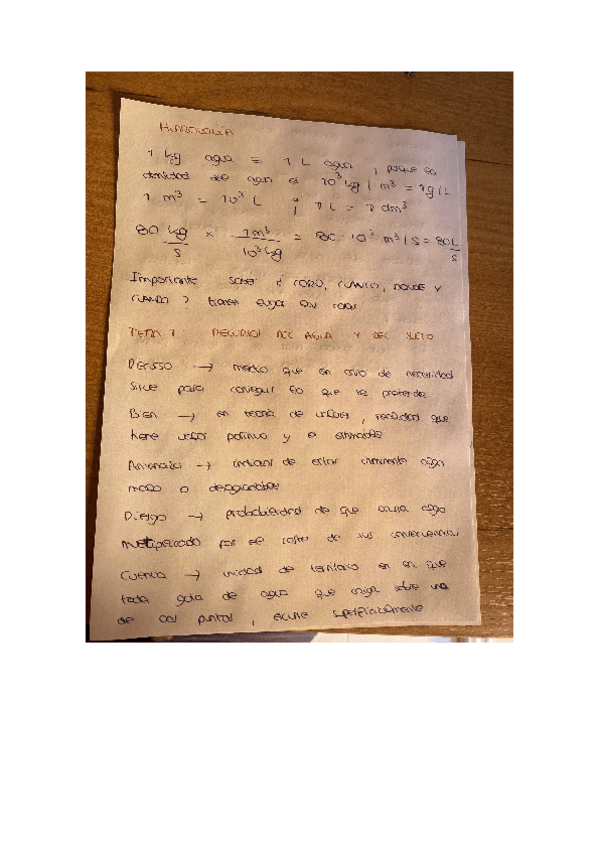 HIDROLOGÍA
1 kg agua = 1 L agua, porque la
densidad del agua es 10³ kg/m³ = 1g/L
1 m³ = 10³ L ; 1 L = 1 dm³
80 kg/s × 1m³/10³kg = 80·10³ m³/s = 80L/s
Importante saber ¿ CÓMO, CUANTO, DONDE Y
CUANDO ? tienen lugar las cosas
TEMA 1: RECURSOS DEL AGUA Y DEL SUELO
Recurso → medio que en caso de necesidad
sirve para conseguir lo que se pretende
Bien → en teoría de valores, realidad que
tiene valor positivo y es estimable
Amenaza → indicios de estar inminente algo
malo o desagradable
Riesgo → probabilidad de que ocurra algo
multiplicado por el coste de sus consecuencias
Cuenca → unidad de territorio en el que
toda gota de agua que caiga sobre uno
de los puntos, escurre superficialmente